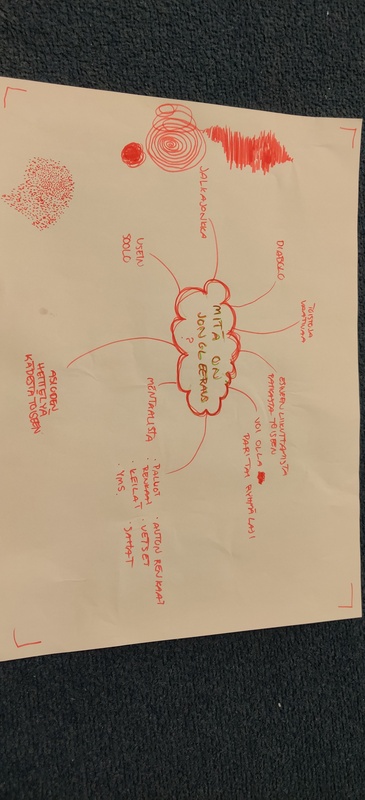 MITÄ ON
JONGLEERAUS
?
JALKAJONKKA
DIABOLO
TOISTOJA
VAATIVAA
ESINEEN LIIKUTTAMISTA
PAIKASTA TOISEEN
VOI OLLA
PARI TAI RYHMÄ LAJI
· PALLOT
· RENKAAT
· KEILAT
· YMS
· AUTON RENKAAT
· VEITSET
· SAHAT
MENTAALISTA
ASIOIDEN
HEITTELYÄ
KÄDESTÄ TOISEEN
USEIN
SOOLO